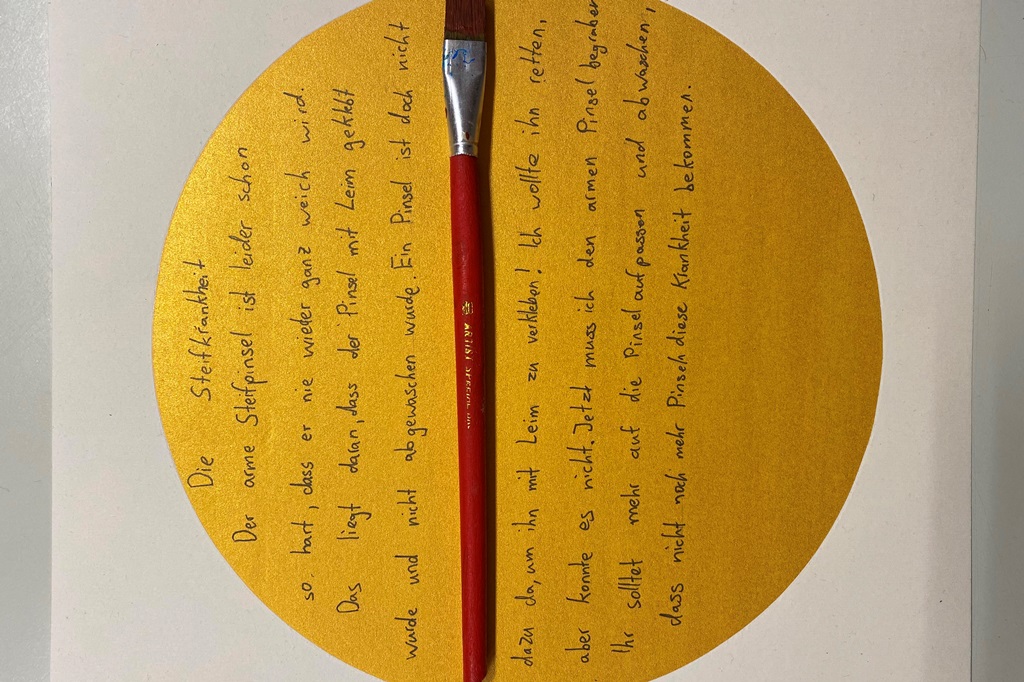 Die Steifkrankheit
Der arme Steifpinsel ist leider schon
so hart, dass er nie wieder ganz weich wird.
Das liegt daran, dass der Pinsel mit Leim geklebt
wurde und nicht abgewaschen wurde. Ein Pinsel ist doch nicht
ARTIST SPECIAL
dazu da, um ihn mit Leim zu verkleben! Ich wollte ihn retten,
aber konnte es nicht. Jetzt muss ich den armen Pinsel begraben
Ihr solltet mehr auf die Pinsel aufpassen und abwaschen,
dass nicht noch mehr Pinseln diese Krankheit bekommen.